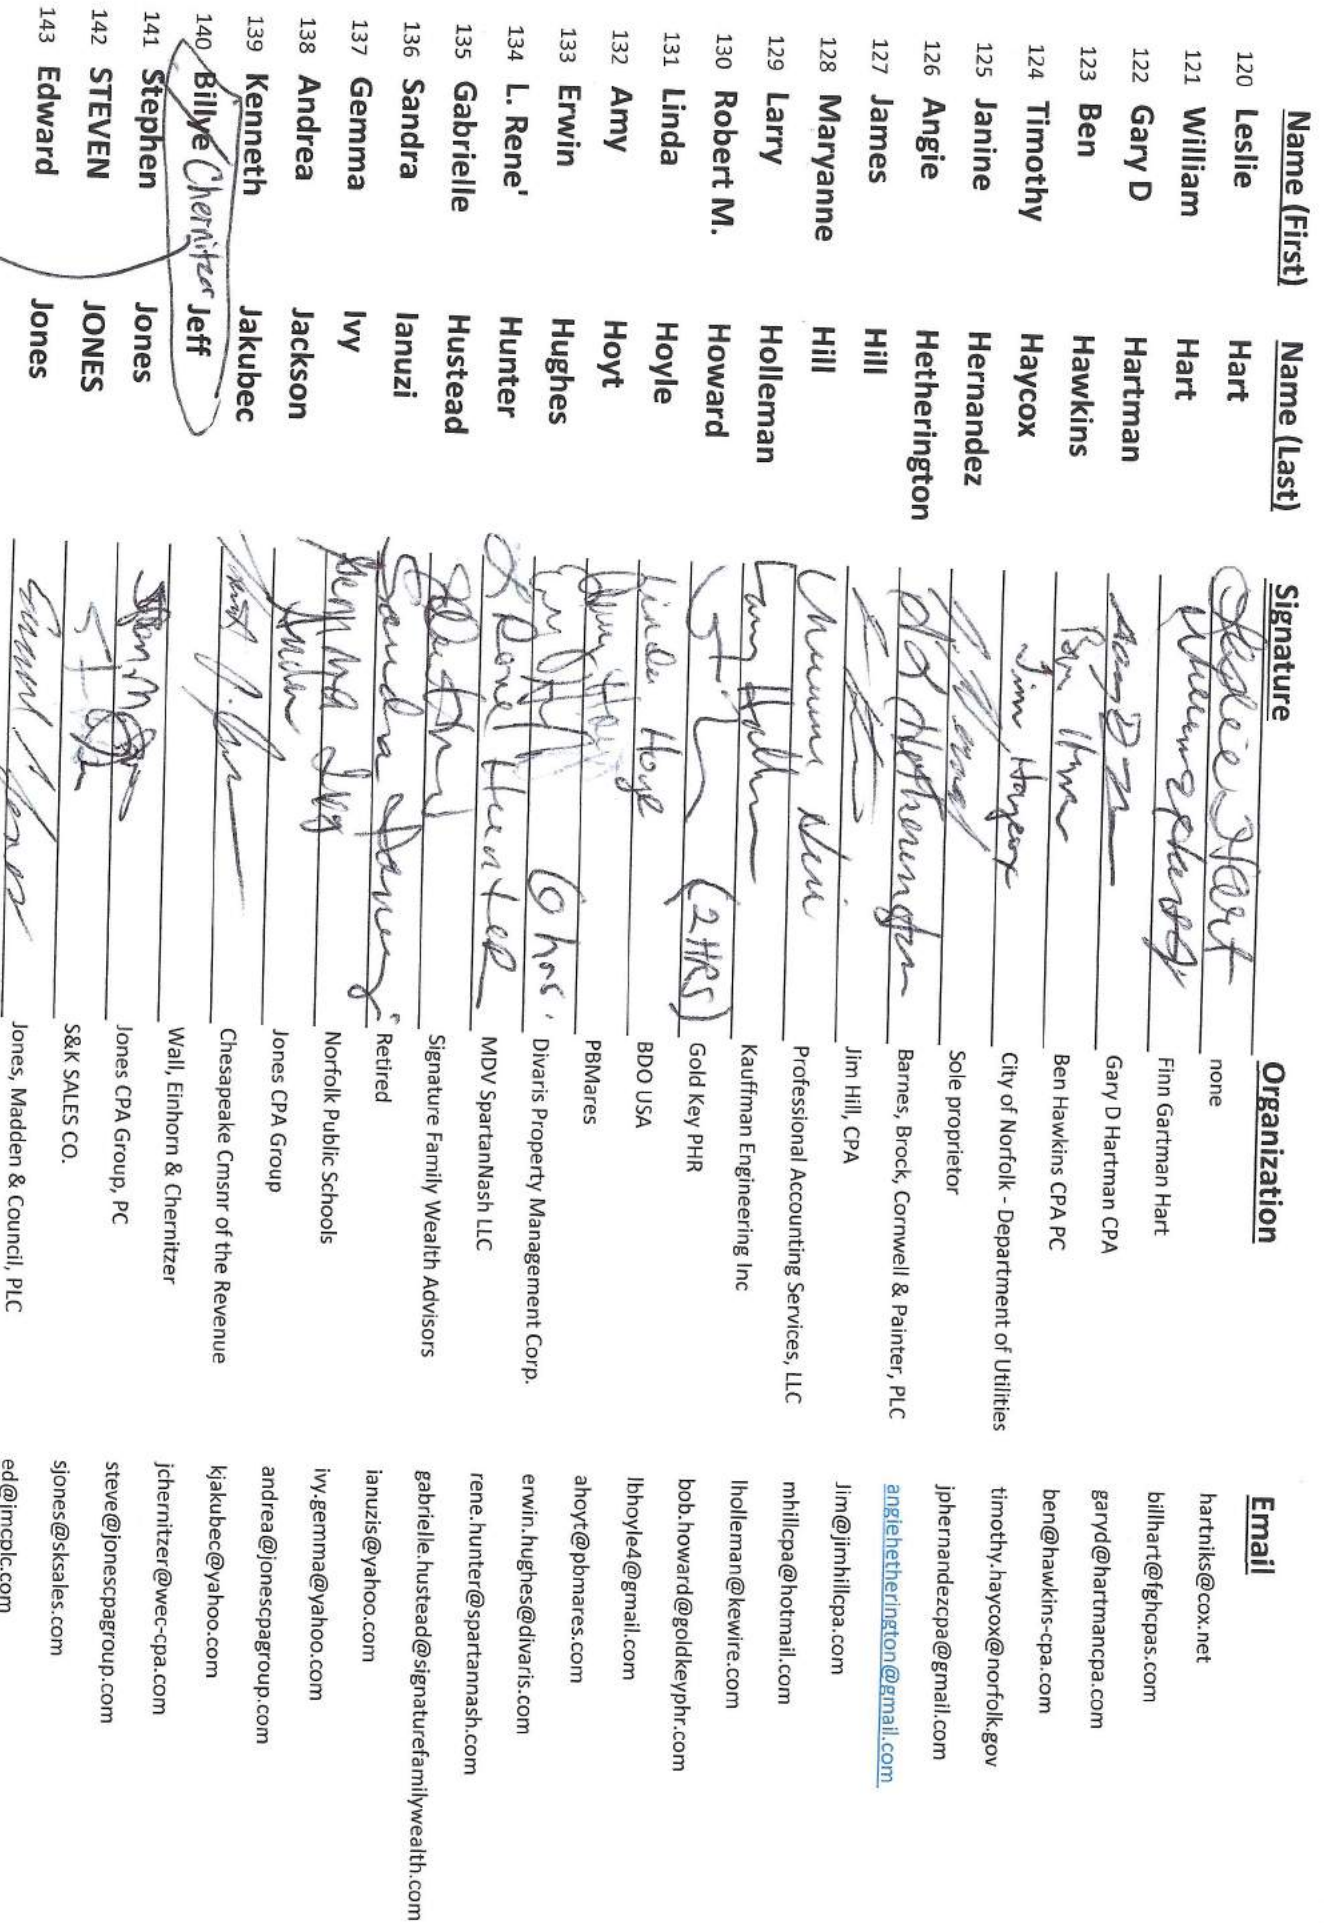 Name (First) Name (Last) Signature Organization Email
120 Leslie Hart Leslie Hart none hartniks@cox.net
121 William Hart Finn Gartman Hart billhart@fghcpas.com
122 Gary D Hartman Gary D Gary D Hartman CPA garyd@hartmancpa.com
123 Ben Hawkins Ben Ben Hawkins CPA PC ben@hawkins-cpa.com
124 Timothy Haycox Tim Haycox City of Norfolk - Department of Utilities timothy.haycox@norfolk.gov
125 Janine Hernandez Sole proprietor jphernandezcpa@gmail.com
126 Angie Hetherington Hetherington Barnes, Brock, Cornwell & Painter, PLC angiehetherington@gmail.com
127 James Hill Jim Hill, CPA Jim@jimhillcpa.com
128 Maryanne Hill Professional Accounting Services, LLC mhillcpa@hotmail.com
129 Larry Holleman Larry Kauffman Engineering Inc lholleman@kewire.com
130 Robert M. Howard (2 HRS) Gold Key PHR bob.howard@goldkeyphr.com
131 Linda Hoyle Linda Hoyle BDO USA lbhoyle4@gmail.com
132 Amy Hoyt Amy Hoyt PBMares ahoyt@pbmares.com
133 Erwin Hughes 6 hrs. Divaris Property Management Corp. erwin.hughes@divaris.com
134 L. Rene' Hunter L Rene' Hunter MDV SpartanNash LLC rene.hunter@spartannash.com
135 Gabrielle Hustead Signature Family Wealth Advisors gabrielle.hustead@signaturefamilywealth.com
136 Sandra Ianuzi Sandra Ianuzi Retired ianuzis@yahoo.com
137 Gemma Ivy Gemma Ivy Norfolk Public Schools ivy.gemma@yahoo.com
138 Andrea Jackson Andrea Jones CPA Group andrea@jonescpagroup.com
139 Kenneth Jakubec Chesapeake Cmsnr of the Revenue kjakubec@yahoo.com
140 Billye Chernitzer Jeff Wall, Einhorn & Chernitzer jchernitzer@wec-cpa.com
141 Stephen Jones Jones CPA Group, PC steve@jonescpagroup.com
142 STEVEN JONES S&K SALES CO. sjones@sksales.com
143 Edward Jones Jones Jones, Madden & Council, PLC ed@jmcplc.com